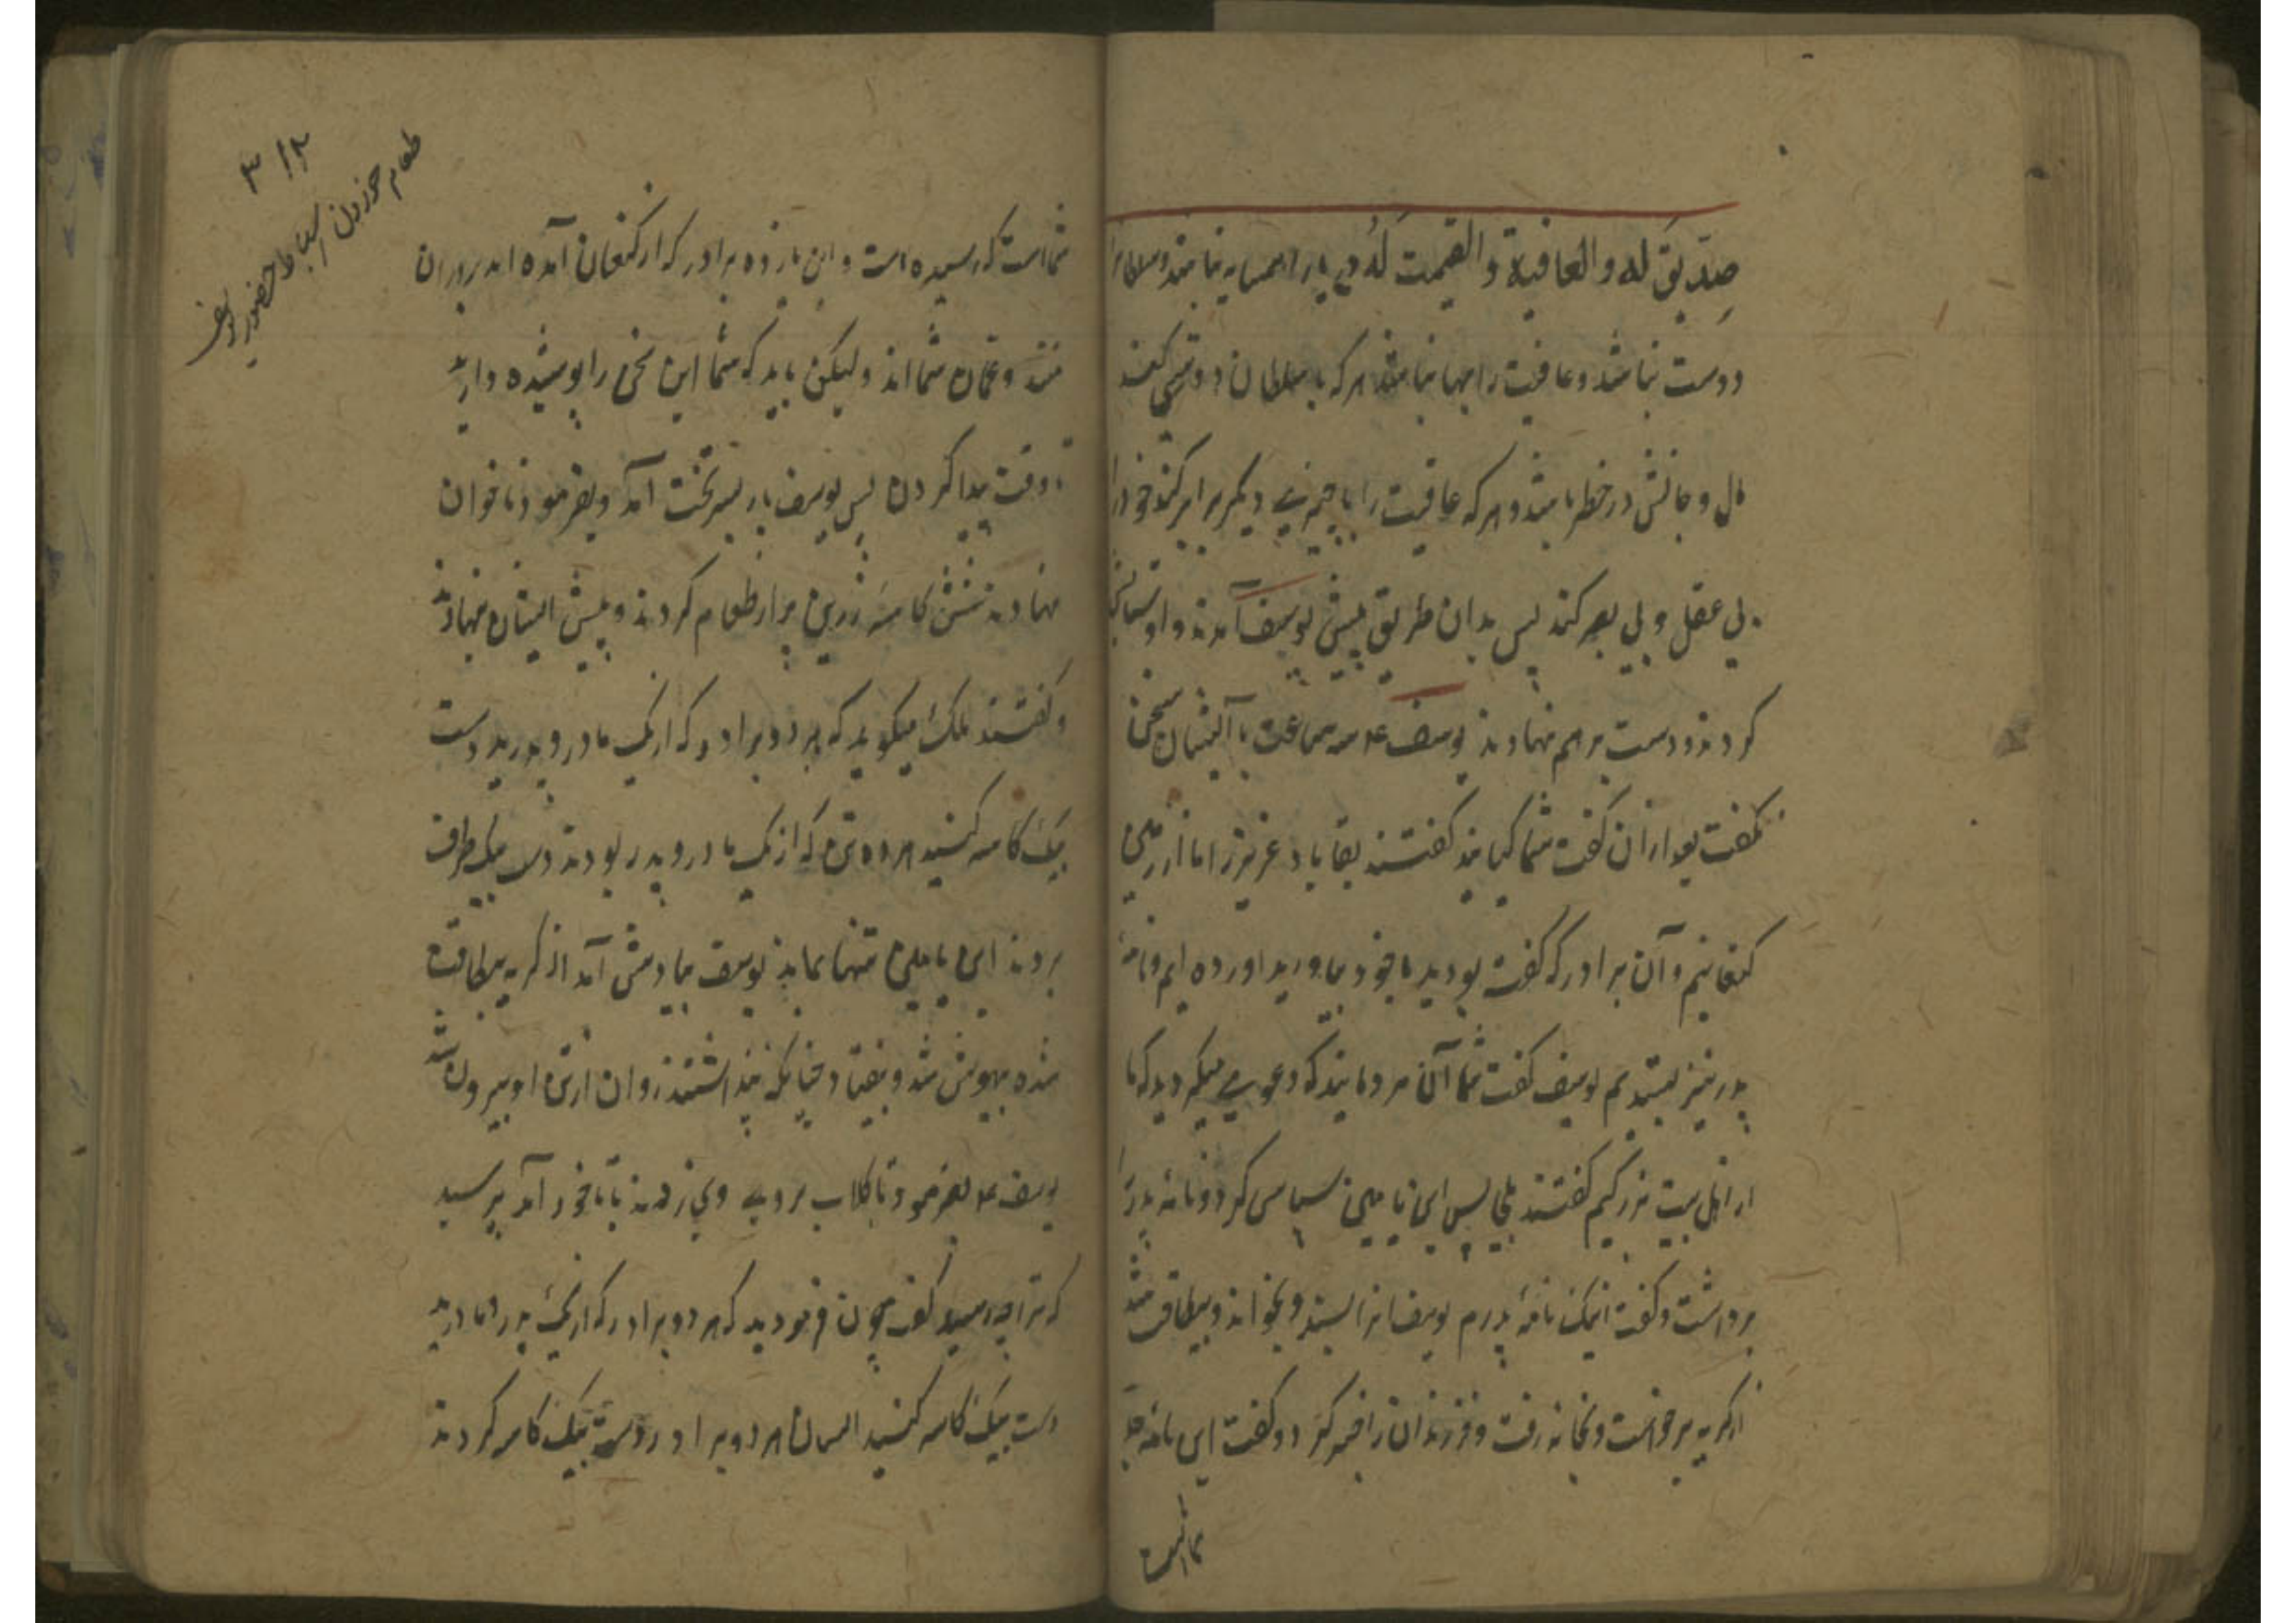 صدیق له والعافیة والقیمت له دریا را همسایه نباشد و سلطانرا
دوست نباشد و عافیت را بها نباشد هر که با سلطان دوستی کند
مال و جانش در خطر باشد و هر که عافیت را با چیزی دیگر برابر کند خود را
بی عقل و بی بصر کند پس بدان طریق پیش یوسف آمدند و او
کردند و دست بر هم نهادند یوسف عم سه ساعت با ایشان سخن
نگفت بعد ازان گفت شما کیانید گفتند بقا باد عزیز را ما از زمین
کنعانیم و آن برادر که گفته بودید با خود بیاورید اورده ایم و نامهٔ
پدر نیز بستدیم یوسف گفت شما آن مردمانید که دعوی میکردید که ما
از اهل بیت بزرگیم گفتند بلی پس ابن یامین سپاس کرد و نامه پدر را
برداشت و گفت اینک نامهٔ پدرم یوسف انرا بستد و بخواند و بیطاقت شد
از گریه برخواست و بخانه رفت و فرزندان را خبر کرد و گفت این نامه جد
شماست
۳۱۲
طعام خوردن اسباط حضور یوسف
شماست که رسیده است و این یازده برادر که از کنعان آمده اند برادران
منند و عمان شما اند ولیکن باید که شما این سخن را پوشیده دارید
تا وقت پیدا کردن پس یوسف باز بسر تخت آمد و بفرمود تا خوان
نهادند شش کاسهٔ زرین پر از طعام کردند و پیش ایشان نهادند
و گفتند ملک میگوید که هر دو برادر که از یک مادر و پدرید دست
بیک کاسه کنید هر دو تن که از یک مادر و پدر بودند دست بیک طرف
بردند ابن یامین تنها بماند یوسف بیادش آمد از گریه بیطاقت
شده بیهوش شد و بیفتاد چنانکه پنداشتند روان از تن او بیرون شد
یوسف عم بفرمود تا گلاب بروی وی زدند تا با خود آمد پرسید
که ترا چه رسید گفت چون فرمودید که هر دو برادر که از یک پدر و مادرید
دست بیک کاسه کنید ایشان هر دو برادر دست بیک کاسه کردند